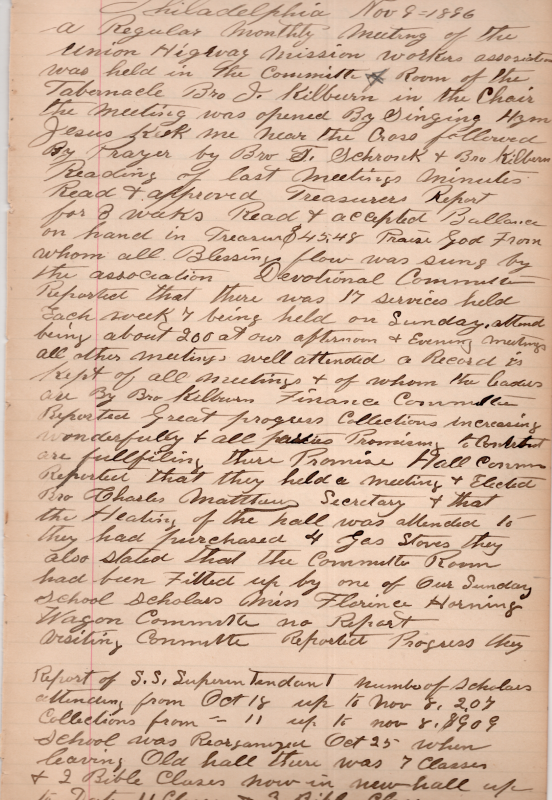 Philadelphia Nov 9-1896
a Regular Monthly Meeting of the
Union Higway mission workers association
was held in the Committe Room of the
Tabernacle Bro J. Kilburn in the Chair
the meeting was opened By Singing Hymn
Jesus Keek me near the Cross followed
By Prayer by Bro T. Schronk & Bro Kilburn
Reading of last meetings minutes
Read & approved Treasurers Report
for 3 weaks Read & accepted Ballance
on hand in Treasury $45.48 Praise God From
whom all Blessings flow was sung by
the association Devotional Committe
Reported that there was 17 services held
Each week 7 being held on Sunday, attend
being about 200 at our afternoon & Evening meetings
all other meetings well attended a Record is
kept of all meetings & of whom the leaders
are By Bro Kilburn Finance Committe
Reported Great progress Collections increasing
wonderfully & all parties Promising to Contribut
are fullfilling there Promise Hall Comm
Reported that they held a meeting & Elected
Bro Charles Matthews Secretary & that
the Heating of the hall was attended to
they had purchased 4 Gas Stoves they
also stated that the Committe Room
had been Fitted up by one of Our Sunday
School Scholars Miss Florence Horning
Wagon Committe no Report
visiting Committe Reported Progress they
Report of S.S. Superintendant number of scholars
attending from Oct 18 up to Nov 8, 207
Collections from - 11 up to nov 8. 8909
School was Reorganized Oct 25 when
leaving Old hall there was 7 Classes
& 2 Bible Clases now in new hall up
to Date 11 Clases & 3 Bible